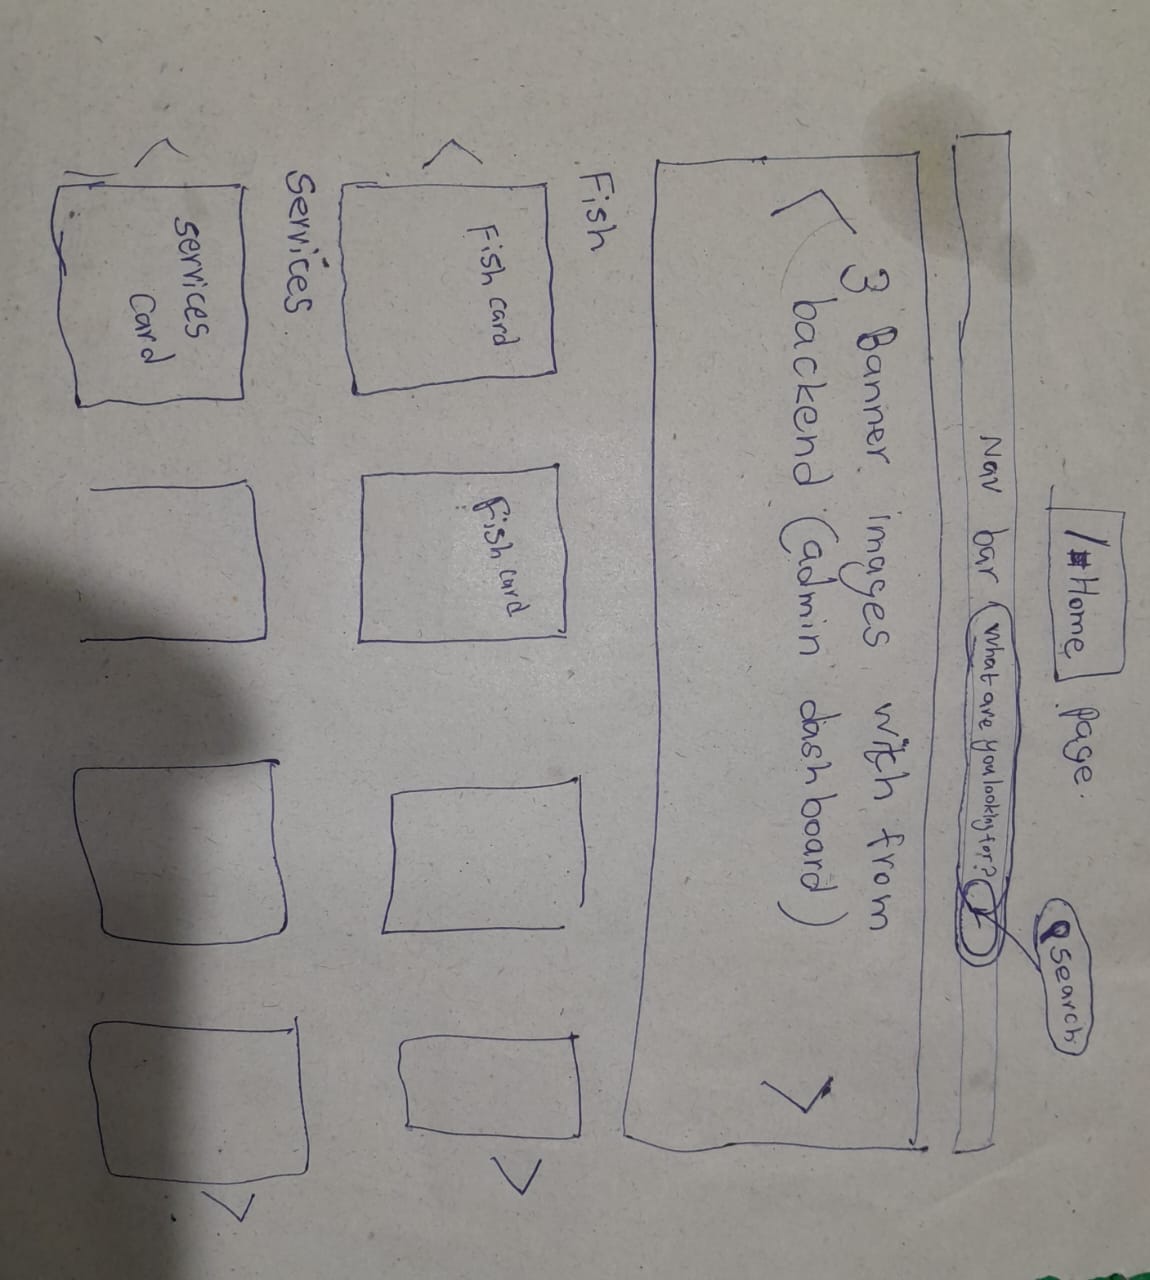 /Home page.
search
Nav bar What are you looking for?
3 Banner images with from
backend (admin dashboard)
Fish
Fish card
Fish card
Services
services
Card